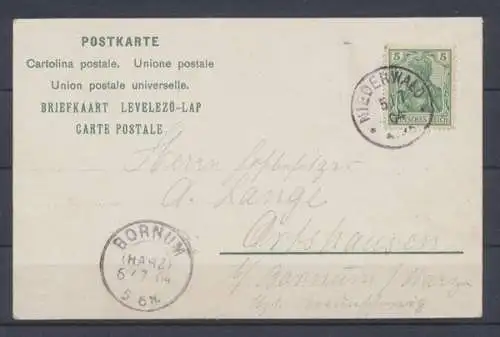 POSTKARTE
Cartolina postale. Unione postale
Union postale universelle.
BRIEFKAART LEVELEZŐ-LAP
CARTE POSTALE
5 5
DEUTSCHES REICH
NIEDERWALD
5/7
04
Herrn Hofbesitzer
A. Lange
Ortshausen
b/ Bornum / Harz
BORNUM
(HARZ)
6/7 04
5-6N.